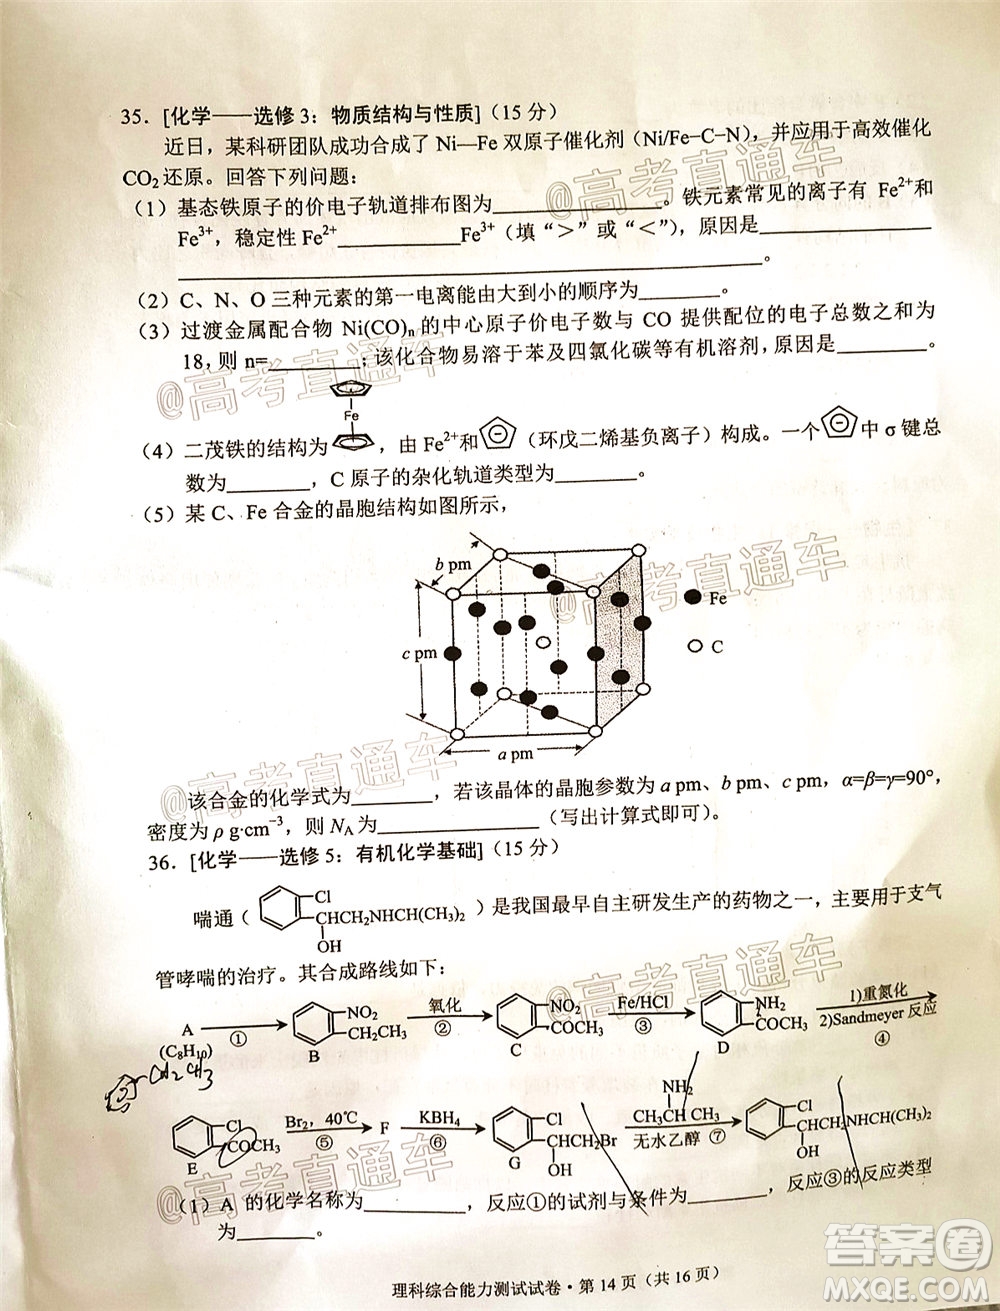 35. [化学——选修 3：物质结构与性质]（15 分）
近日，某科研团队成功合成了 Ni—Fe 双原子催化剂（Ni/Fe-C-N），并应用于高效催化
CO₂还原。回答下列问题：
（1）基态铁原子的价电子轨道排布图为________。铁元素常见的离子有 Fe²⁺和
Fe³⁺，稳定性 Fe²⁺________Fe³⁺（填“＞”或“＜”），原因是________
________。
（2）C、N、O 三种元素的第一电离能由大到小的顺序为________。
（3）过渡金属配合物 Ni(CO)ₙ 的中心原子价电子数与 CO 提供配位的电子总数之和为
18，则 n=________；该化合物易溶于苯及四氯化碳等有机溶剂，原因是________。
Fe
（4）二茂铁的结构为，由 Fe²⁺和（环戊二烯基负离子）构成。一个中 σ 键总
数为________，C 原子的杂化轨道类型为________。
（5）某 C、Fe 合金的晶胞结构如图所示，
b pm
c pm
a pm
Fe
C
该合金的化学式为________，若该晶体的晶胞参数为 a pm、b pm、c pm，α=β=γ=90°，
密度为 ρ g·cm⁻³，则 N_A 为________（写出计算式即可）。
36. [化学——选修 5：有机化学基础]（15 分）
喘通（ Cl CHCH₂NHCH(CH₃)₂ OH ）是我国最早自主研发生产的药物之一，主要用于支气
管哮喘的治疗。其合成路线如下：
A (C₈H₁₀) ① NO₂ CH₂CH₃ B 氧化 ② NO₂ COCH₃ C Fe/HCl ③ NH₂ COCH₃ D 1)重氮化 2)Sandmeyer 反应 ④
CH₂CH₃
Cl COCH₃ E Br₂，40℃ ⑤ F KBH₄ ⑥ Cl CHCH₂Br OH G NH₂ CH₃CHCH₃ 无水乙醇 ⑦ Cl CHCH₂NHCH(CH₃)₂ OH
（1）A 的化学名称为________，反应①的试剂与条件为________，反应③的反应类型
为________。
理科综合能力测试试卷·第 14 页（共 16 页）
@高考直通车
@高考直通车
@高考直通车
@高考直通车
@高考直通车
@高考直通车
@高考直通车
答案圈
MXQE.COM